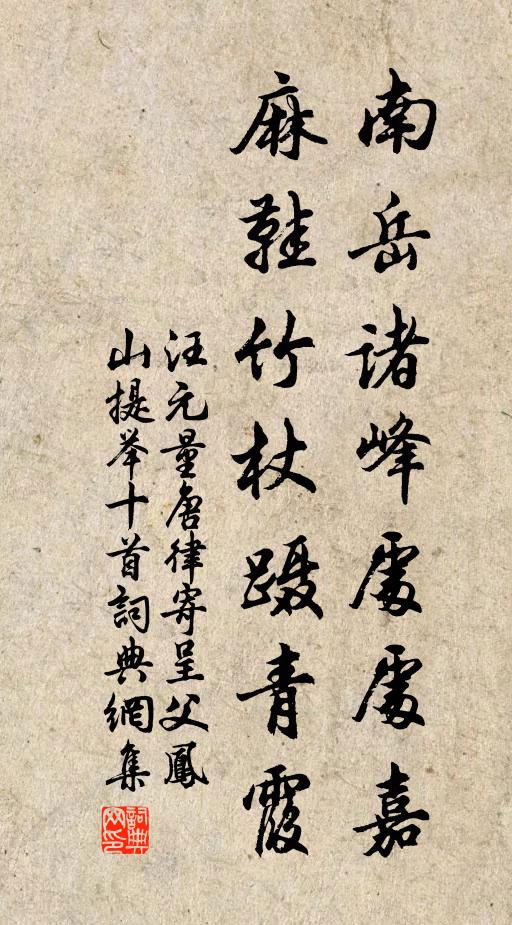 南岳诸峰處處嘉
麻鞋竹杖蹑青霞
汪元量唐律寄呈父鳳
山提举十首詞典網集
詞典
网印